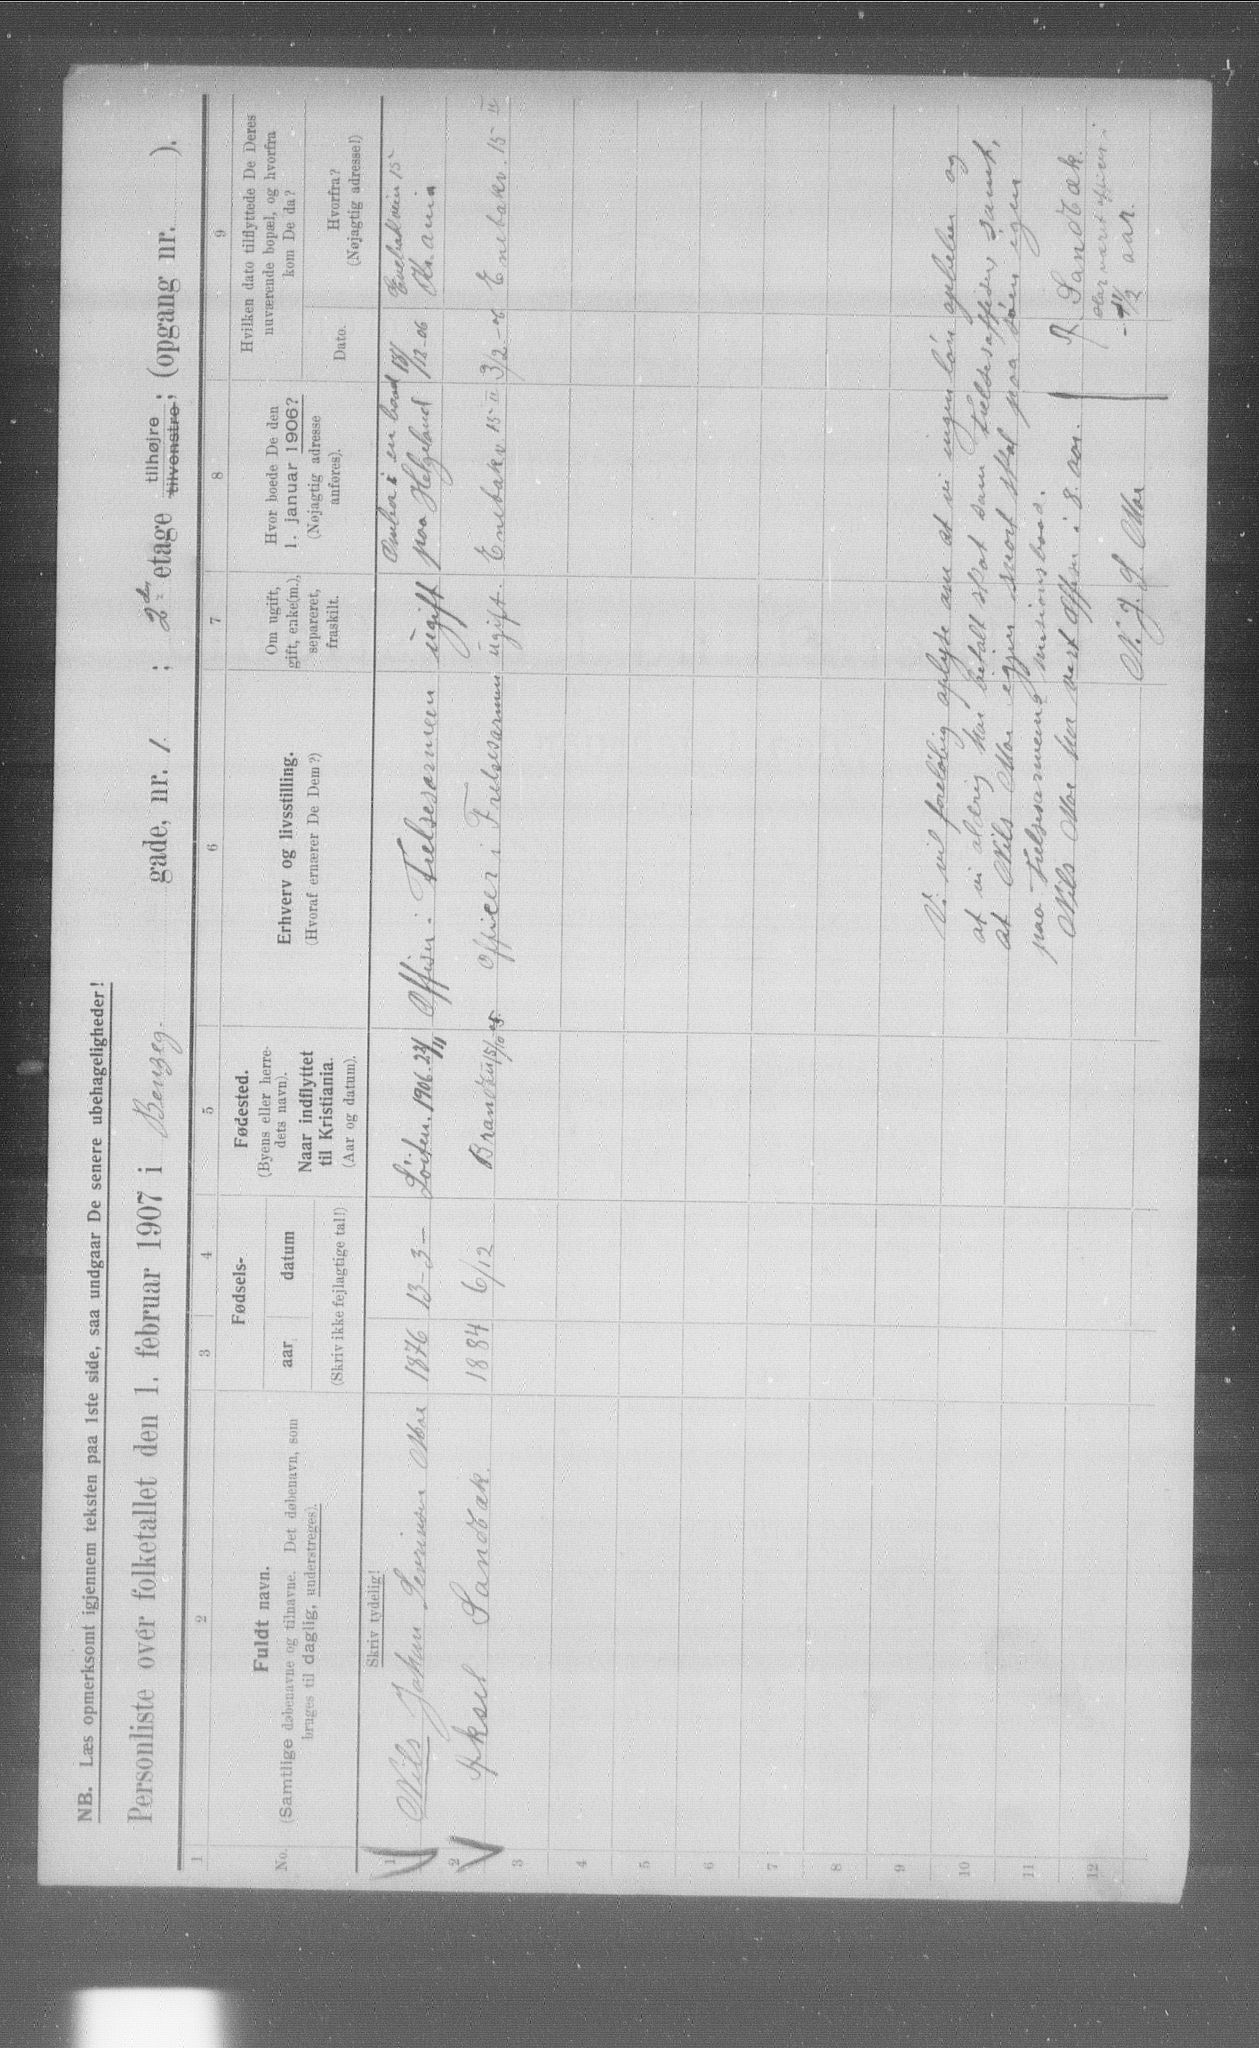 NB. Læs opmerksomt igjennem teksten paa 1ste side, saa undgaar De senere ubehageligheder!
Personliste over folketallet den 1. februar 1907 i Benzeg. gade, nr. 1 ; 2den etage tilhøjre tilvenstre; (opgang nr. ).
1 2 3 4 5 6 7 8 9
No.
Fuldt navn.
(Samtlige døbenavne og tilnavne. Det døbenavn, som
bruges til daglig, understreges).
Fødsels-
aar datum
(Skriv ikke fejlagtige tal!)
Fødested.
(Byens eller herre-
dets navn).
Naar indflyttet
til Kristiania.
(Aar og datum).
Erhverv og livsstilling.
(Hvoraf ernærer De Dem?)
Om ugift,
gift, enke(m.),
separeret,
fraskilt.
Hvor boede De den
1. januar 1906?
(Nøjagtig adresse
anføres).
Hvilken dato tilflyttede De Deres
nuværende bopæl, og hvorfra
kom De da?
Dato.
Hvorfra?
(Nøjagtig adresse!)
Skriv tydelig!
1 Nils Johan Sevrinsen Moe 1876 13-3- Löiten. 1906. Offiser i Frelsesarmeen ugift i en baad paa Helgeland /12-06 Enebakveien 15 Kr.ania
2 Aksel Sandbæk. 1884 6/12 Officer i Frelsesarmeen ugift. Enebakv 15 II 3/2- Enebakv. 15 II
3
4
5
6
7
8
9
10
11
12
Vi vil foreløbig oplyse om at vi ingen løn opbeler og
at vi aldrig har betalt skat som Frelsesoffiser samt,
at Nils Moe egjen snort skal paa sjøen igen
paa Frelsesarmeens misionsbaad.
Nils Moe har vert Offiser i 8. aar.
N. J. S. Moe
A Sandbæk.
har været officer i
1/2 aar.